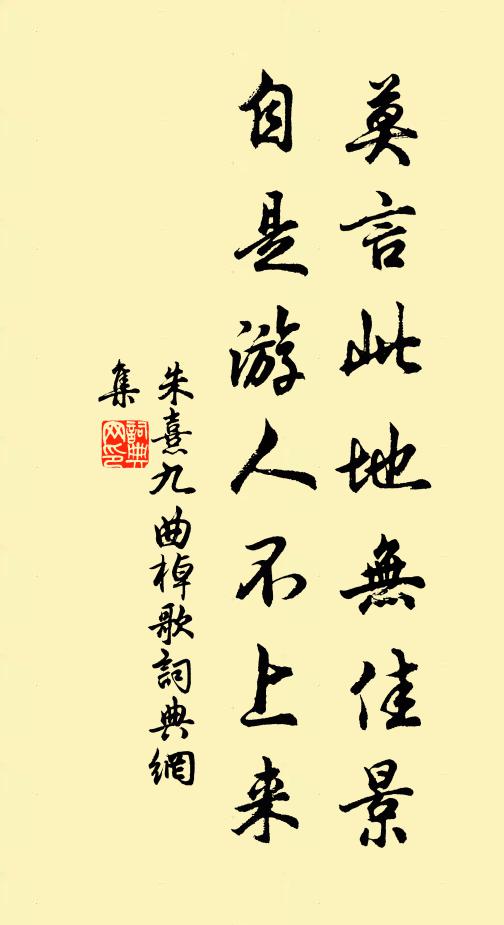 莫言此地無佳景
自是游人不上来
朱熹九曲棹歌詞典網
集
詞典网印